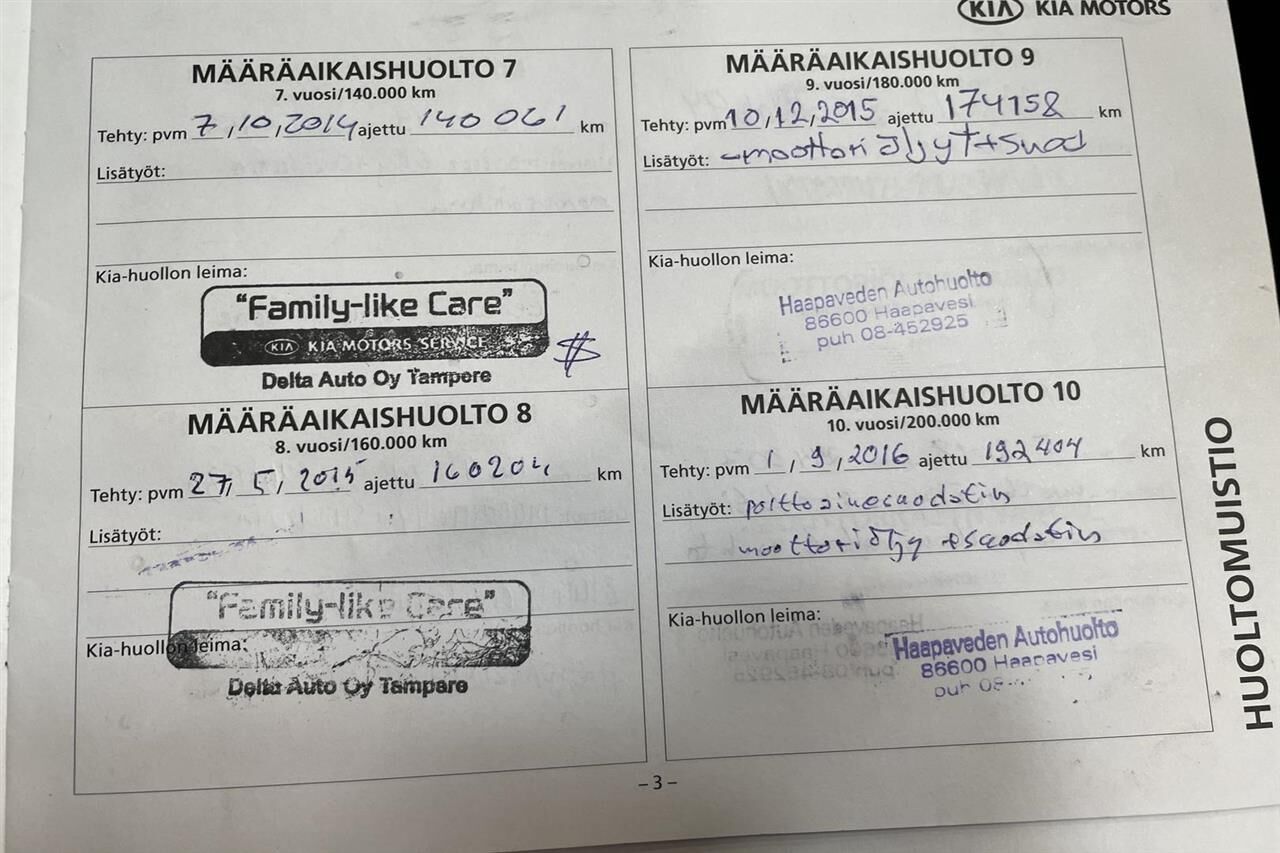 KIA KIA MOTORS
MÄÄRÄAIKAISHUOLTO 7
7. vuosi/140.000 km
Tehty: pvm 7,10,2014 ajettu 140 061 km
Lisätyöt:
Kia-huollon leima:
"Family-like Care"
KIA KIA MOTORS SERVICE
Delta Auto Oy Tampere
MÄÄRÄAIKAISHUOLTO 8
8. vuosi/160.000 km
Tehty: pvm 27, 5, 2015 ajettu 160204 km
Lisätyöt:
"Family-like Care"
Kia-huollon leima:
Delta Auto Oy Tampere
MÄÄRÄAIKAISHUOLTO 9
9. vuosi/180.000 km
Tehty: pvm 10,12,2015 ajettu 174158 km
Lisätyöt: -moottori öljyt+suod
Kia-huollon leima:
Haapaveden Autohuolto
86600 Haapavesi
puh 08-452925
MÄÄRÄAIKAISHUOLTO 10
10. vuosi/200.000 km
Tehty: pvm 1, 9, 2016 ajettu 192404 km
Lisätyöt: polttoainesuodatin
moottoriöljy +suodatin
Kia-huollon leima:
Haapaveden Autohuolto
86600 Haapavesi
puh 08-
HUOLTOMUISTIO
– 3 –